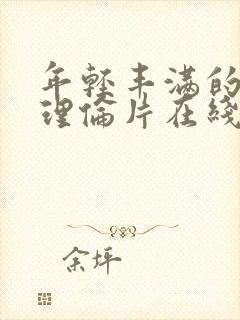 年轻丰满的
理倫片在綫
余坪